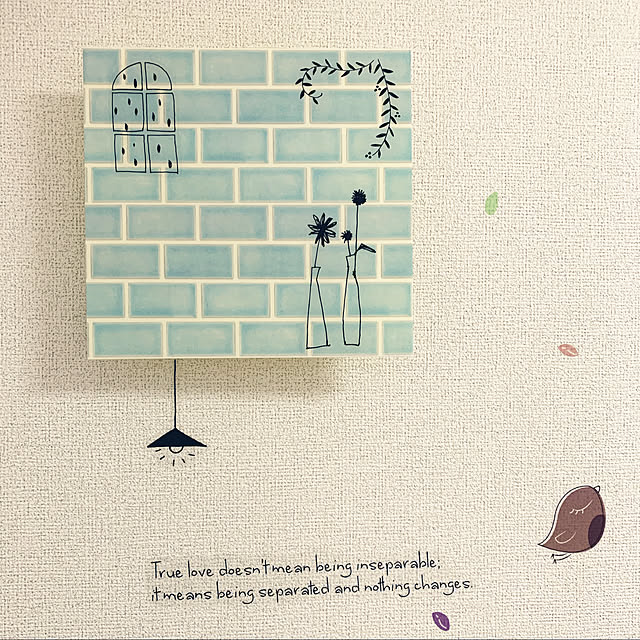 True love doesn't mean being inseparable;
it means being separated and nothing changes.